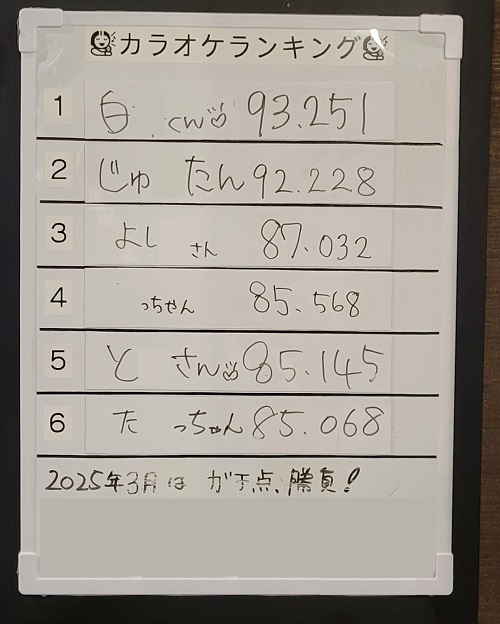 カラオケランキング
1 白 cw 93.251
2 じゅ たん 92.228
3 よし さん 87.032
4 っちゃん 85.568
5 と さん 85.145
6 た っちゃん 85.068
2025年3月は ガチ点、勝負!